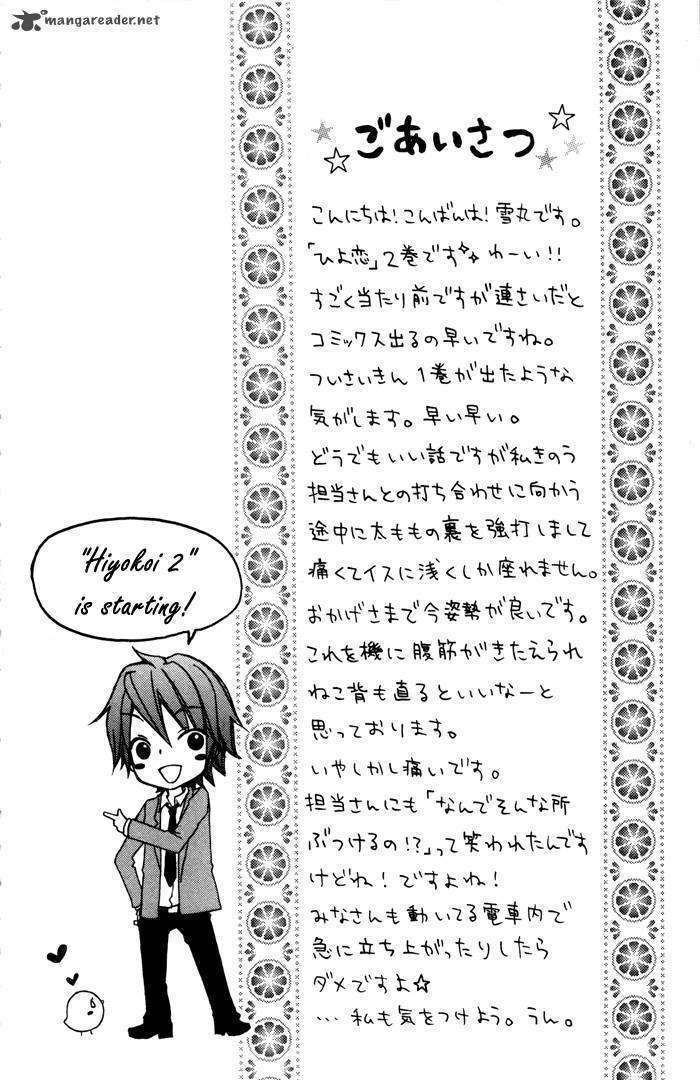 mangareader.net
ごあいさつ
こんにちは!こんばんは!雪丸です。
「ひよ恋」2巻です わーい!!
すごく当たり前ですが連さいだと
コミックス出るの早いですね。
ついさいきん1巻が出たような
気がします。早い早い。
どうでもいい話ですが私きのう
担当さんとの打ち合わせに向かう
途中に太ももの裏を強打しまして
痛くてイスに浅くしか座れません。
おかげさまで今姿勢が良いです。
これを機に腹筋がきたえられ
ねこ背も直るといいなーと
思っております。
いやしかし痛いです。
担当さんにも「なんでそんな所
ぶつけるの!?」って笑われたんです
けどね!ですよね!
みなさんも動いてる電車内で
急に立ち上がったりしたら
ダメですよ☆
…私も気をつけよう。うん。
"Hiyokoi 2"
is starting!